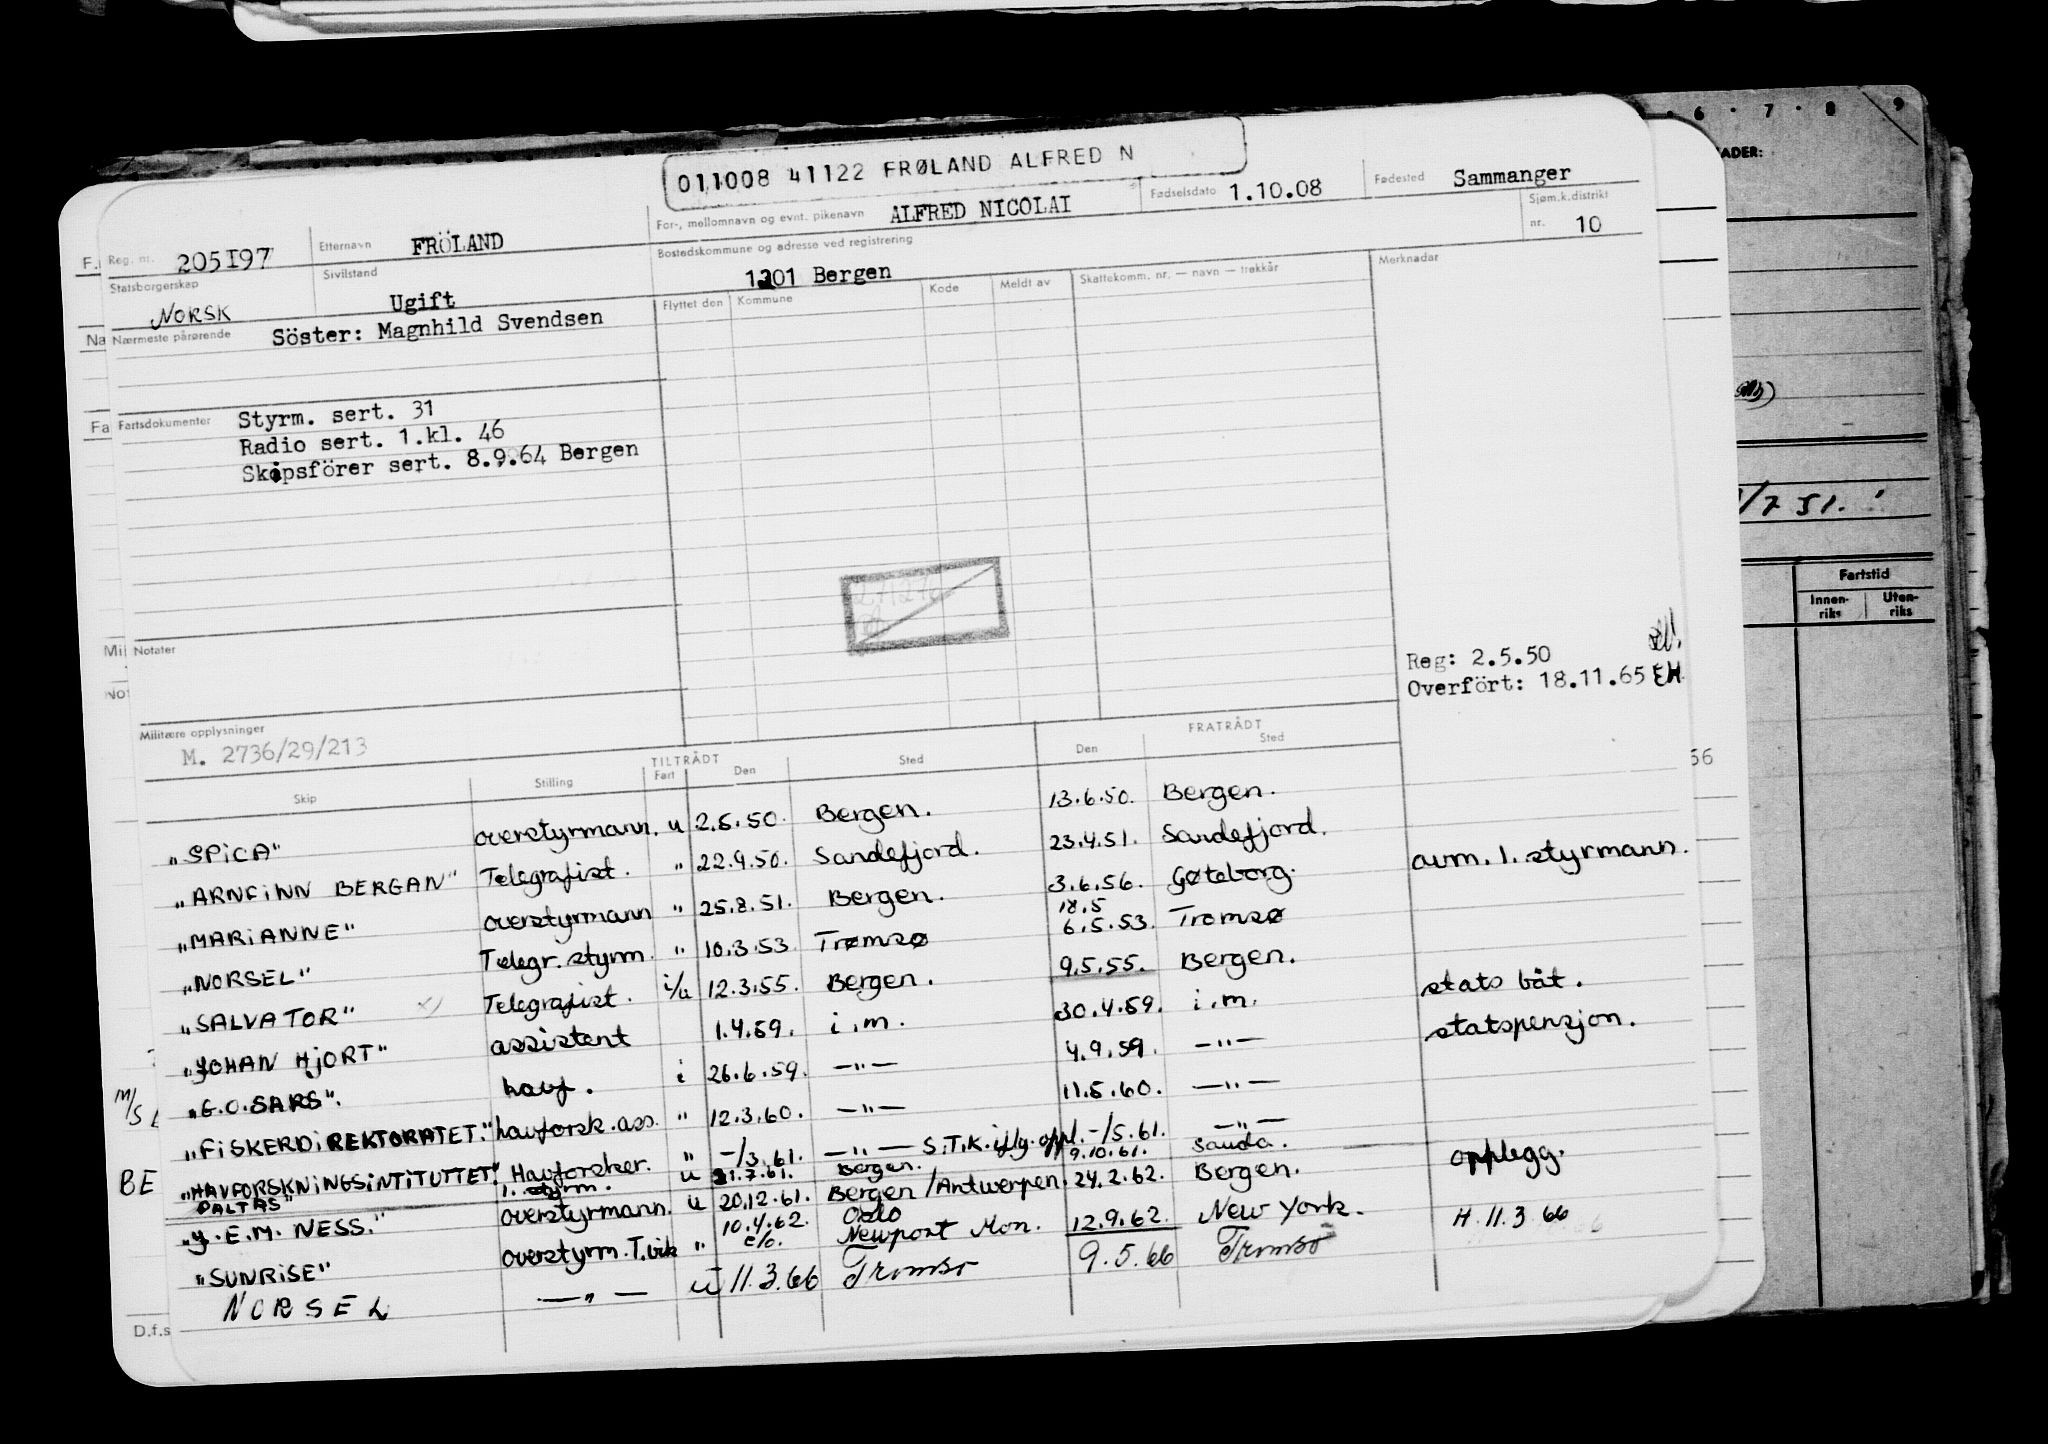 011008 41122 FRØLAND ALFRED N
Reg. nr. 205I97
Etternavn FRÖLAND
For-, mellomnavn og evnt. pikenavn ALFRED NICOLAI
Fødselsdato 1.10.08
Fødested Sammanger
Statsborgerskap NORSK
Sivilstand Ugift
Bostedskommune og adresse ved registrering 1201 Bergen
Sjøm.k.distrikt nr. 10
Nærmeste pårørende Söster: Magnhild Svendsen
Flyttet den Kommune Kode Meldt av Skattekomm. nr. — navn — trekkår Merknadar
Fartsdokumenter Styrm. sert. 31
Radio sert. 1.kl. 46
Skipsförer sert. 8.9.64 Bergen
Notater
Reg: 2.5.50
Overfört: 18.11.65 EH
Militære opplysninger
M. 2736/29/213
TILTRÅDT FRATRÅDT
Skip Stilling Fart Den Sted Den Sted
"SPICA" overstyrmann. u 2.5.50. Bergen. 13.6.50. Bergen.
"ARNFINN BERGAN" Telegrafist. " 22.9.50. Sandefjord. 23.4.51. Sandefjord.
"MARIANNE" overstyrmann " 25.8.51. Bergen. 3.6.56. Gøteborg. avm. 1. styrmann.
18.5
"NORSEL" Telegr. styrm. " 10.3.53. Tromsø 6.5.53. Tromsø
"SALVATOR" Telegrafist. i/u 12.3.55. Bergen. 9.5.55. Bergen.
"JOHAN HJORT" assistent 1.4.59. i.m. 30.4.59. i.m. stats båt.
"G.O.SARS". havf. i 26.6.59. —"— 4.9.59. —"— statspensjon.
"FISKERDIREKTORATET." havforsk.ass. " 12.3.60. —"— 11.5.60. —"—
"HAVFORSKNINGSINTITUTTET" Havforsker. " -/3.61. —"— S.T.K. iflg. oppl. -/5.61. —"—
DALTAS" 1. styrm. u 21.7.61. Bergen. 9.10.61. Sauda.
"J.E.M. NESS." overstyrmann. u 20.12.61. Bergen/Antwerpen. 24.2.62. Bergen. opplegg.
10.4.62. Oslo
"SUNRISE" overstyrm. T.vik " e/o. Newport Mon. 12.9.62. New York.
NORSEL —"— u 11.3.66 Tromsø 9.5.66 Tromsø H. 11.3 66
F.
Na
Fa
Mi
No
M/S
BE
D.f.s
6 · 7 · 8 · 9
ADER:
/7 51.
Fartstid
Innen-riks Uten-riks
56